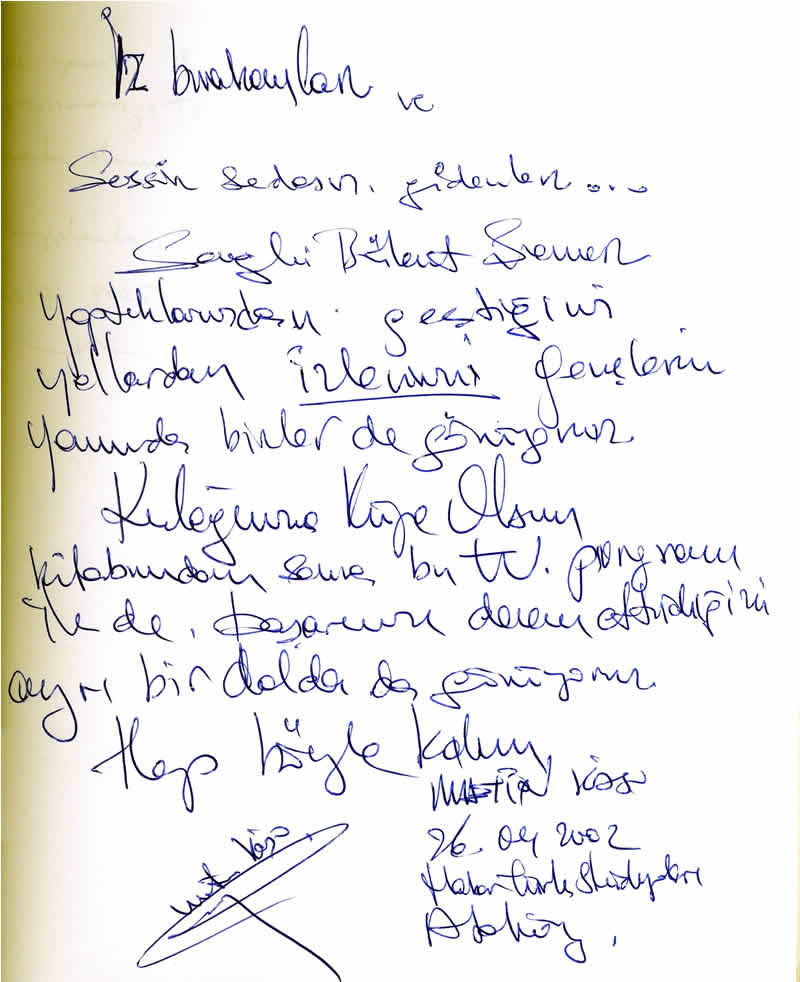 İz bırakanlar ve
Sessiz sedasız gidenler...
Saygılı Bülent Şenver
yaptıklarınızdan geçtiğiniz
yollardan izleminizi gençlerin
yanında bizler de görüyoruz
Kulağınıza Küpe Olsun
kitabından sonra bu TV. programı
ile de, başarınızı devam ettirdiğinizi
ayrı bir dalda da görüyoruz
Hep böyle kalın,
Metin Köse
26.04.2002
Habertürk Stüdyoları
Ataköy,